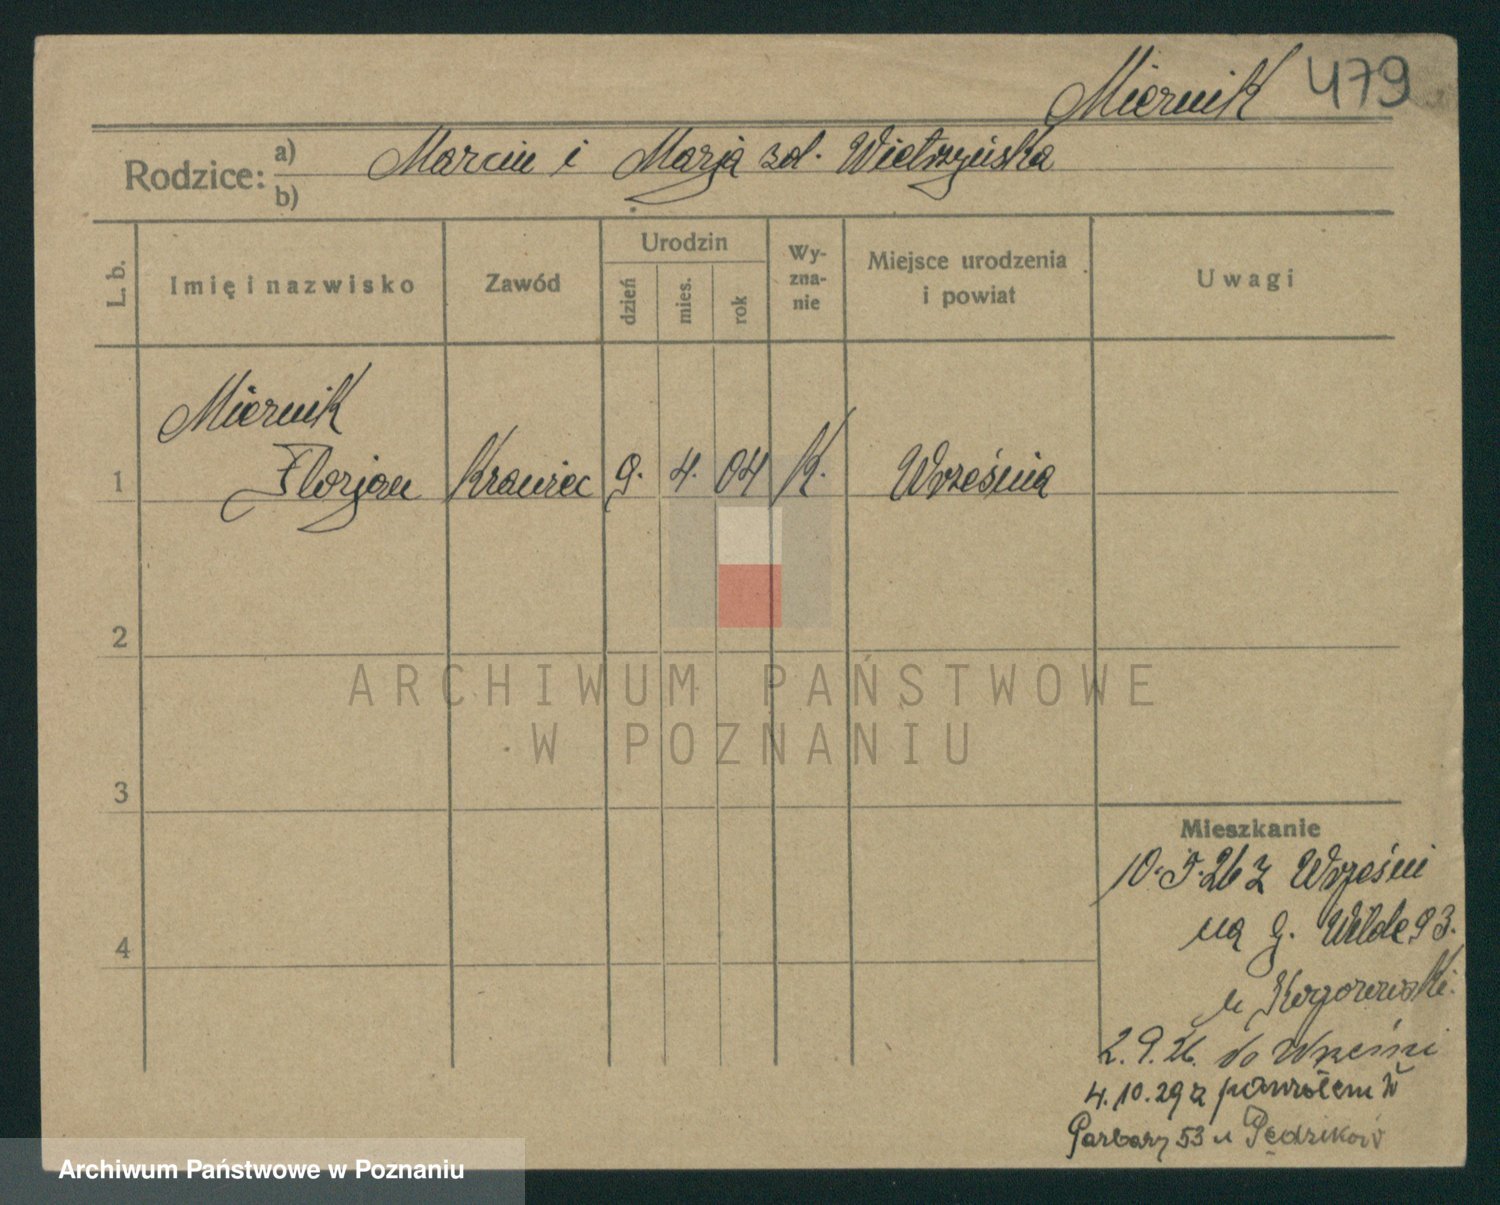 Miernik 479
Rodzice: a) Marcin i Marja zd. Wietrzyńska
b)
L. b.
Imię i nazwisko
Zawód
Urodzin
dzień
mies.
rok
Wy-
zna-
nie
Miejsce urodzenia
i powiat
Uwagi
Miernik
1 Florjan Krawiec 9. 4. 04 K. Września
2
ARCHIWUM PAŃSTWOWE
W POZNANIU
3
Mieszkanie
10.5.26 z Wrześni
4
na g. Wilde 93.
u
2.9.26. do Wrześni
4.10.29 z powrotem
Garbary 53 u
Archiwum Państwowe w Poznaniu